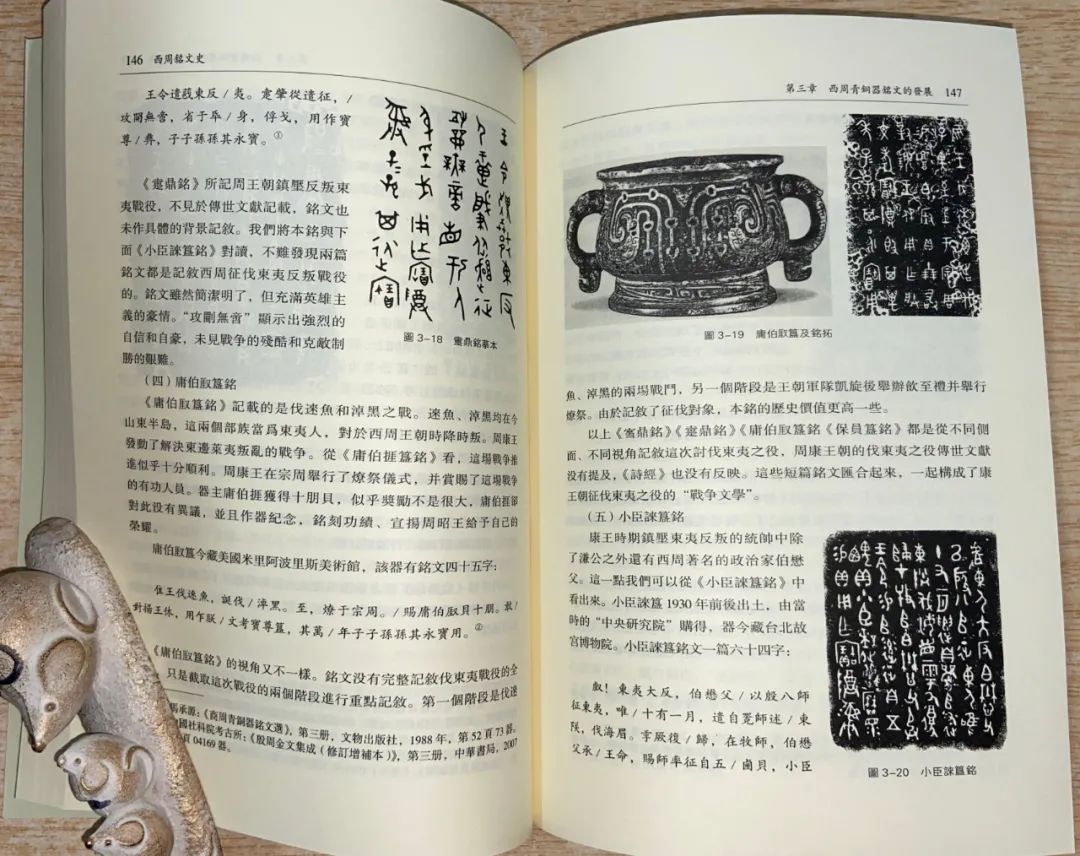 146 西周銘文史
王令遣戡東反/夷。疐肇從遣征,/
攻開無啻,省于厈/身,俘戈,用作寶
尊/彝,子子孫孫其永寶。①
《疐鼎銘》所記周王朝鎮壓反叛東
夷戰役,不見於傳世文獻記載,銘文也
未作具體的背景記敘。我們將本銘與下
面《小臣諫簋銘》對讀,不難發現兩篇
銘文都是記敘西周征伐東夷反叛戰役
的。銘文雖然簡潔明了,但充滿英雄主
義的豪情。“攻剛無啻”顯示出強烈的
自信和自豪,未見戰争的殘酷和克敵制
勝的艱難。
圖3-18 疐鼎銘摹本
(四)庸伯㪤簋銘
《庸伯㪤簋銘》記載的是伐逨魚和淖黑之戰。逨魚、淖黑均在今
山東半島,這兩個部族當爲東夷人,對於西周王朝時降時叛。周康王
發動了解決東邊萊夷叛亂的戰争。從《庸伯捱簋銘》看,這場戰争推
進似乎十分順利。周康王在宗周舉行了燎祭儀式,并賞賜了這場戰争
的有功人員。器主庸伯捱獲得十朋貝,似乎獎勵不是很大,庸伯捱卻
對此没有異議,並且作器紀念,銘刻功績、宣揚周昭王給予自己的
榮耀。
庸伯㪤簋今藏美國米里阿波里斯美術館,該器有銘文四十五字:
隹王伐逨魚,誕伐/淖黑。至,燎于宗周。/賜庸伯㪤貝十朋。敢/
對揚王休,用乍朕/文考寶尊簋,其萬/年子子孫孫其永寶用。②
《庸伯㪤簋銘》的視角又不一樣。銘文没有完整記敘伐東夷戰役的全
只是截取這次戰役的兩個階段進行重點記敘。第一個階段是伐逨
馬承源:《商周青銅器銘文選》,第三册,文物出版社,1988年,第52頁73器。
國社科院考古所:《殷周金文集成(修訂增補本)》,第三册,中華書局,2007
頁04169器。
第三章 西周青銅器銘文的發展 147
圖3-19 庸伯㪤簋及銘拓
魚、淖黑的兩場戰鬥,另一個階段是王朝軍隊凱旋後舉辦飲至禮并舉行
燎祭。由於記敘了征伐對象,本銘的歷史價值更高一些。
以上《𡩜鼎銘》《疐鼎銘》《庸伯㪤簋銘《保員簋銘》都是從不同側
面、不同視角記敘這次討伐東夷之役,周康王朝的伐東夷之役傳世文獻
没有提及,《詩經》也没有反映。這些短篇銘文匯合起來,一起構成了康
王朝征伐東夷之役的“戰争文學”。
(五)小臣諫簋銘
康王時期鎮壓東夷反叛的統帥中除
了謙公之外還有西周著名的政治家伯懋
父。這一點我們可以從《小臣諫簋銘》中
看出來。小臣諫簋1930年前後出土,由當
時的“中央研究院”購得,器今藏台北故
宫博物院。小臣諫簋銘文一篇六十四字:
䖒!東夷大反,伯懋父/以殷八師
征東夷,唯/十有一月,遣自䍙師述/東
陕,伐海眉。雩厥復/歸,在牧師,伯懋
父承/王命,賜師率征自五/鹵貝,小臣
圖3-20 小臣諫簋銘